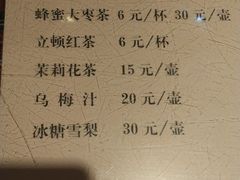 蜂蜜大枣茶 6元/杯 30元/壶
立顿红茶 6元/杯
茉莉花茶 15元/壶
乌梅汁 20元/壶
冰糖雪梨 30元/壶